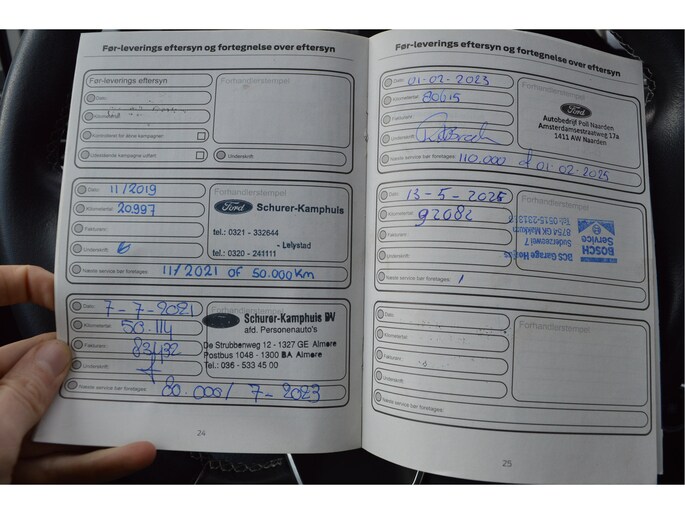 Før-leverings eftersyn og fortegnelse over eftersyn
Før-leverings eftersyn
Dato:
Kilometertal:
Kontrollere for åbne kampagner:
Udestående kampagne udført:
Forhandlerstempel
Underskrift:
Dato: 11/2019
Kilometertal: 20.997
Fakturanr.:
Underskrift:
Næste service bør foretages: 11/2021 of 50.000 km
Forhandlerstempel
Ford Schurer-Kamphuis
tel.: 0321 - 332644
- Lelystad
tel.: 0320 - 241111
Dato: 7-7-2021
Kilometertal: 50.114
Fakturanr.:
Underskrift:
Næste service bør foretages: 80.000/ 7-2023
Ford Schurer-Kamphuis BV
afd. Personenauto's
De Strubbenweg 12 - 1327 GE Almere
Postbus 1048 - 1300 BA Almere
Tel.: 036 - 533 45 00
24
Før-leverings eftersyn og fortegnelse over eftersyn
Dato: 01-02-2023
Kilometertal: 80615
Fakturanr.:
Underskrift:
Næste service bør foretages: 110.000 of 01-02-2025
Forhandlerstempel
Ford
Autobedrijf Poll Naarden
Amsterdamsestraatweg 17a
1411 AW Naarden
Dato: 13-5-2025
Kilometertal: 92082
Fakturanr.:
Underskrift:
Næste service bør foretages: /
Forhandlerstempel
BOSCH
Service
BCS Garage
Suderzeewei 7
8754 GK Makkum
Dato:
Kilometertal:
Fakturanr.:
Underskrift:
Næste service bør foretages:
Forhandlerstempel
25